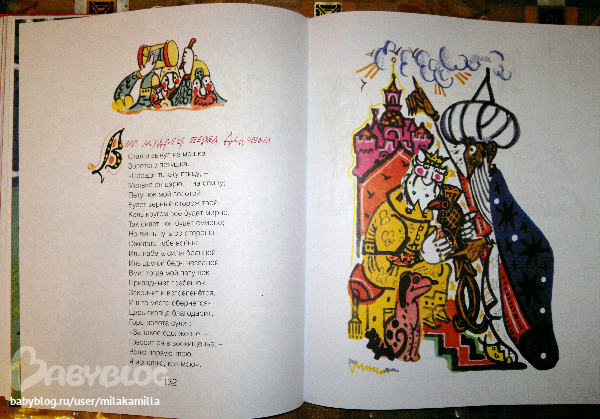 Вот мудрец перед Дадоном
Стал и вынул из мешка
Золотого петушка.
«Посади ты эту птицу, —
Молвил он царю, — на спицу;
Петушок мой золотой
Будет верный сторож твой:
Коль кругом всё будет мирно,
Так сидеть он будет смирно;
Но лишь чуть со стороны
Ожидать тебе войны,
Иль набега силы бранной,
Иль другой беды незваной,
Вмиг тогда мой петушок
Приподымет гребешок,
Закричит и встрепенётся
И в то место обернётся».
Царь скопца благодарит,
Горы золота сулит.
«За такое одолженье, —
Говорит он в восхищенье, —
Волю первую твою
Я исполню, как мою».
132
BABYBLOG
babyblog.ru/user/milakamilla